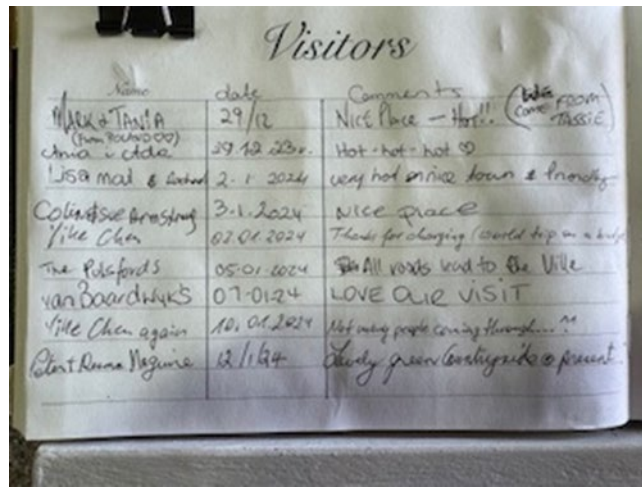 Visitors
Name date Comments
MARK & TANIA 29/12 NICE PLACE - HOT!! (WE COME FROM TASSIE)
(from POLAND ♡♡)
Ania i Ada 29.12.23r. Hot-hot-hot ♡
Lisa mat & 2-1-2024 very hot nice town & friendly
Colin & Sue Armstrong 3.1.2024 Nice place
Yike Chen 02.01.2024 Thanks for charging (world trip on a
The Pulsfords 05-01-2024 All roads lead to the Ville
van Baardwyks 07-01-24 LOVE OUR VISIT
Yike Chen again 10.01.2024 Not many people coming through... ^^
Peter & Maguire 12/1/24 Lovely green Countryside @ present.